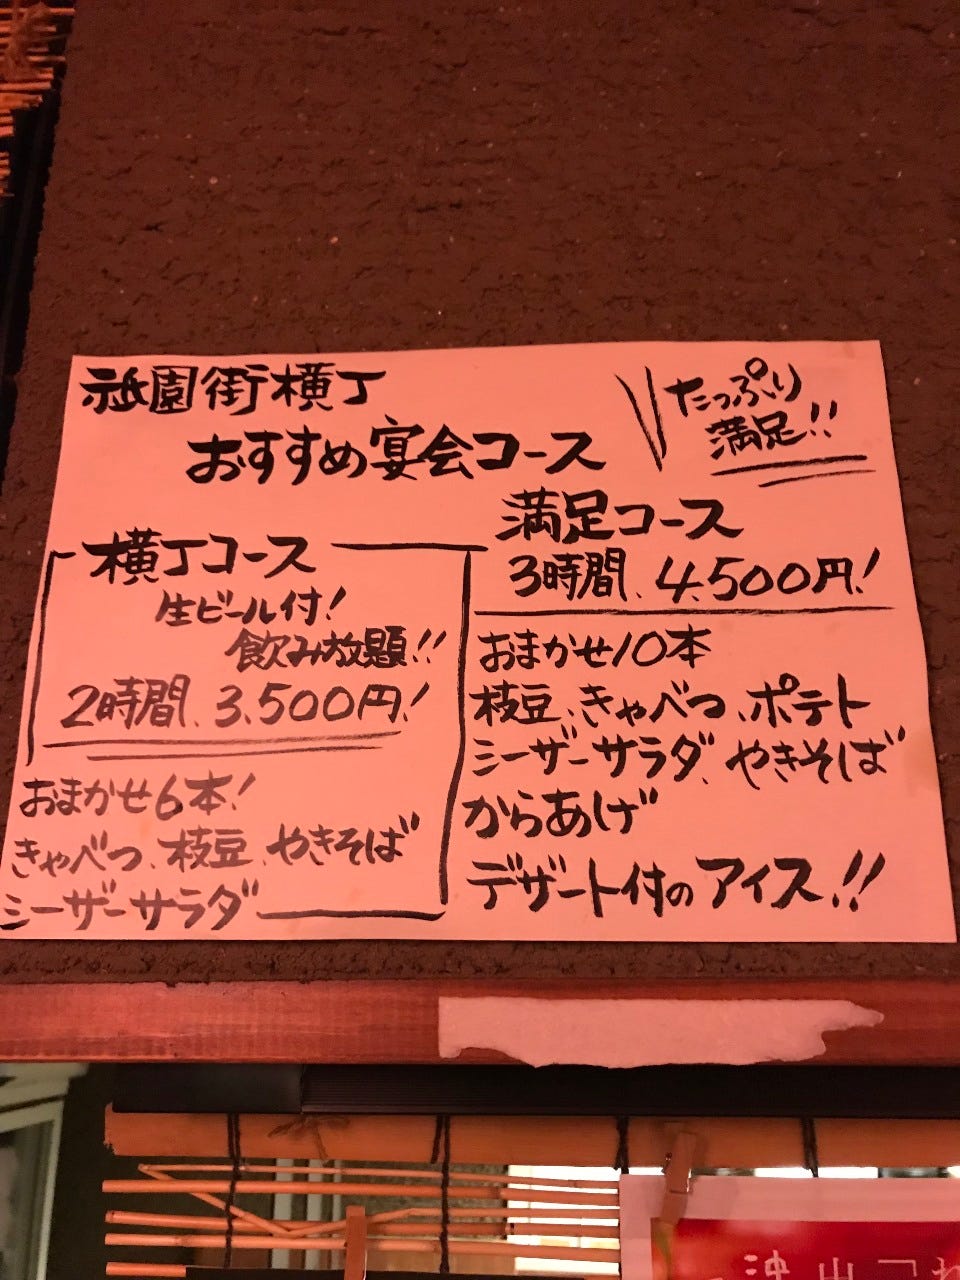 祇園街横丁
おすすめ宴会コース
たっぷり
満足!!
横丁コース
生ビール付!
飲み放題!!
2時間、3,500円!
おまかせ6本!
きゃべつ、枝豆、やきそば
シーザーサラダ
満足コース
3時間、4,500円!
おまかせ10本
枝豆、きゃべつ、ポテト
シーザーサラダ、やきそば
からあげ
デザート付のアイス!!